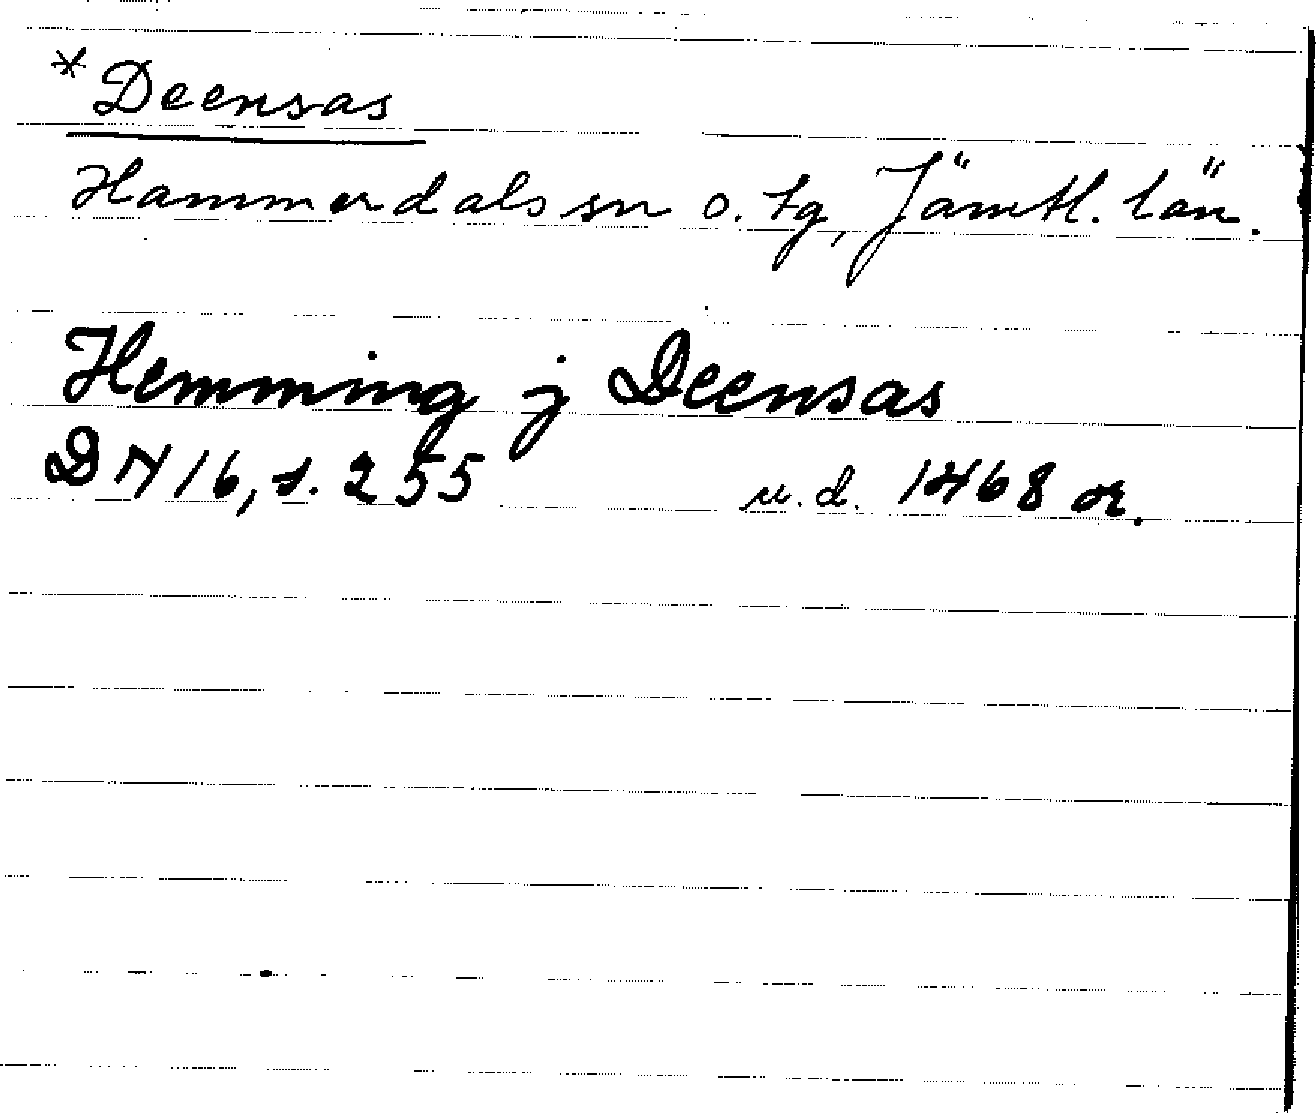 *Deensas
Hammerdals sn o. tg, Jämtl. län.
Hemming j Deensas
DN 16, s. 255 u.d. 1468 or.